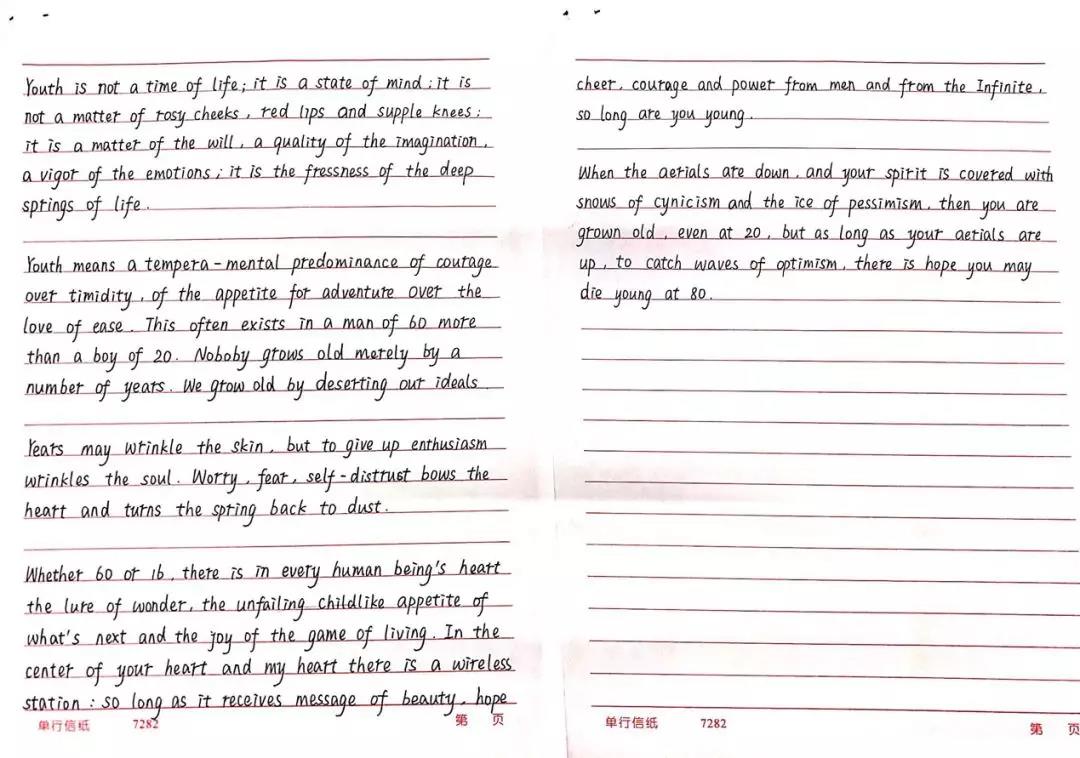 Youth is not a time of life; it is a state of mind; it is
not a matter of rosy cheeks, red lips and supple knees;
it is a matter of the will, a quality of the imagination,
a vigor of the emotions; it is the fressness of the deep
springs of life.
Youth means a tempera-mental predominance of courage
over timidity, of the appetite for adventure over the
love of ease. This often exists in a man of 60 more
than a boy of 20. Noboby grows old merely by a
number of years. We grow old by deserting our ideals.
Years may wrinkle the skin, but to give up enthusiasm
wrinkles the soul. Worry, fear, self-distrust bows the
heart and turns the spring back to dust.
Whether 60 or 16, there is in every human being's heart
the lure of wonder, the unfailing childlike appetite of
what's next and the joy of the game of living. In the
center of your heart and my heart there is a wireless
station: so long as it receives message of beauty, hope
单行信纸 7282 第 页
cheer, courage and power from men and from the Infinite,
so long are you young.
When the aerials are down, and your spirit is covered with
snows of cynicism and the ice of pessimism, then you are
grown old, even at 20, but as long as your aerials are
up, to catch waves of optimism, there is hope you may
die young at 80.
单行信纸 7282 第 页